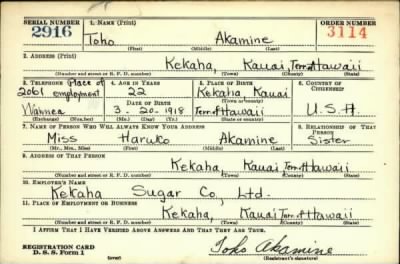 SERIAL NUMBER 1. NAME (Print) ORDER NUMBER
2916 Toho Akamine 3114
(First) (Middle) (Last)
2. ADDRESS (Print)
Kekaha, Kauai, Terr of Hawaii
(Number and street or R. F. D. number) (Town) (County) (State)
3. TELEPHONE Place of 4. AGE IN YEARS 5. PLACE OF BIRTH 6. COUNTRY OF CITIZENSHIP
2061 employment 22 Kekaha, Kauai
DATE OF BIRTH (Town or county)
Waimea 3-20-1918 Terr of Hawaii U.S.A.
(Exchange) (No.) (Mo.) (Day) (Yr.) (State or country)
7. NAME OF PERSON WHO WILL ALWAYS KNOW YOUR ADDRESS 8. RELATIONSHIP OF THAT PERSON
Miss Haruko Akamine Sister
(Mr., Mrs., Miss) (First) (Middle) (Last)
9. ADDRESS OF THAT PERSON
Kekaha, Kauai Terr of Hawaii
(Number and street or R. F. D. number) (Town) (County) (State)
10. EMPLOYER'S NAME
Kekaha Sugar Co, Ltd.
11. PLACE OF EMPLOYMENT OR BUSINESS
Kekaha, Kauai Terr of Hawaii
(Number and street or R. F. D. number) (Town) (County) (State)
I AFFIRM THAT I HAVE VERIFIED ABOVE ANSWERS AND THAT THEY ARE TRUE.
REGISTRATION CARD Toho Akamine
D. S. S. Form 1 (over) (Registrant's signature)